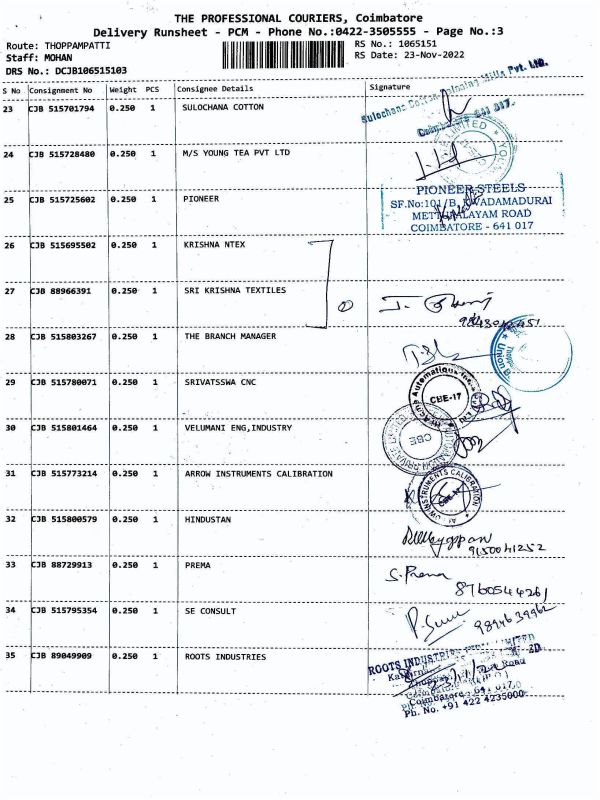 THE PROFESSIONAL COURIERS, Coimbatore
Delivery Runsheet - PCM - Phone No.:0422-3505555 - Page No.:3
Route: THOPPAMPATTI RS No.: 1065151
Staff: MOHAN RS Date: 23-Nov-2022
DRS No.: DCJB106515103
S No Consignment No Weight PCS Consignee Details Signature
23 CJB 515701794 0.250 1 SULOCHANA COTTON
Sulochana Cotton Spinning Mills Pvt. Ltd.
Coimbatore 641 017.
24 CJB 515728480 0.250 1 M/S YOUNG TEA PVT LTD
25 CJB 515725602 0.250 1 PIONEER
PIONEER STEELS
SF.No:101/B, KAVADAMADURAI
METTUPALAYAM ROAD
COIMBATORE - 641 017
26 CJB 515695502 0.250 1 KRISHNA NTEX
27 CJB 88966391 0.250 1 SRI KRISHNA TEXTILES
28 CJB 515803267 0.250 1 THE BRANCH MANAGER
29 CJB 515780071 0.250 1 SRIVATSSWA CNC
CBE-17
30 CJB 515801464 0.250 1 VELUMANI ENG,INDUSTRY
CBE
31 CJB 515773214 0.250 1 ARROW INSTRUMENTS CALIBRATION
ARROW INSTRUMENTS CALIBRATION
32 CJB 515800579 0.250 1 HINDUSTAN
9150041252
33 CJB 88729913 0.250 1 PREMA
S. Prema
8760544261
34 CJB 515795354 0.250 1 SE CONSULT
9894639962
35 CJB 89049909 0.250 1 ROOTS INDUSTRIES
ROOTS INDUSTRIES LIMITED
Coimbatore 641 017.
Ph. No. +91 422 4235000